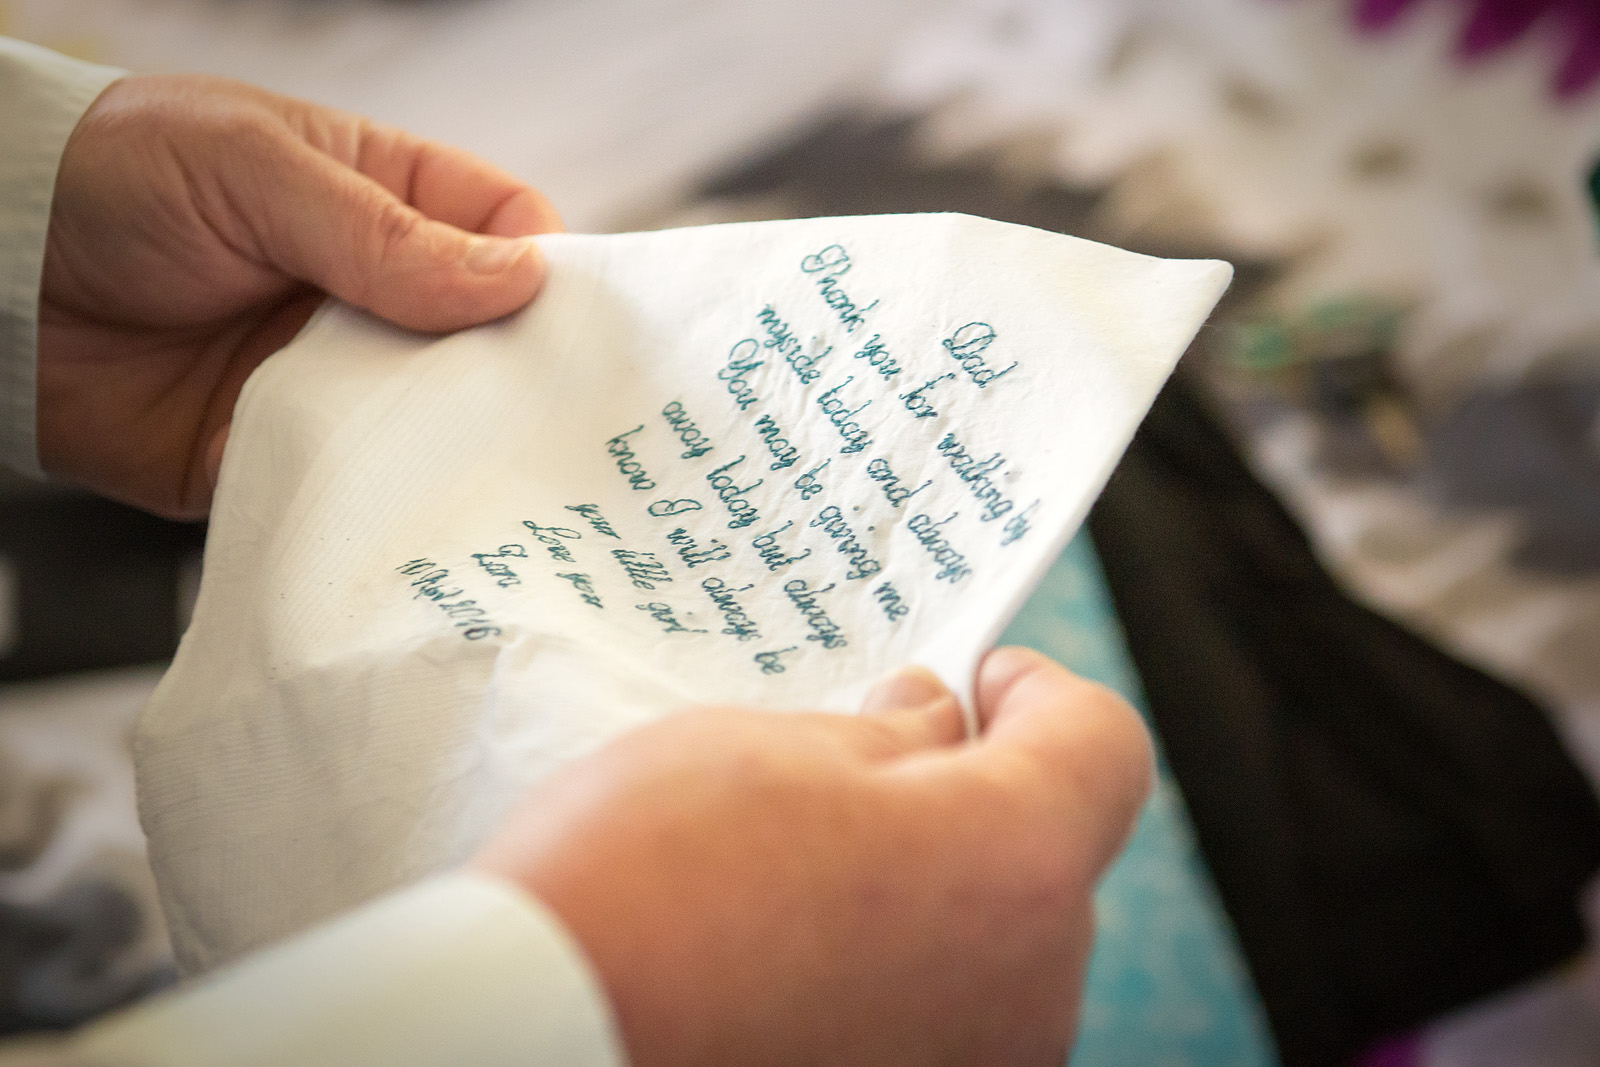 Dad
Thank you for walking by
myside today and always
You may be giving me
away today but always
know I will always be
your little girl
Love you
Zoni
10 April 2016